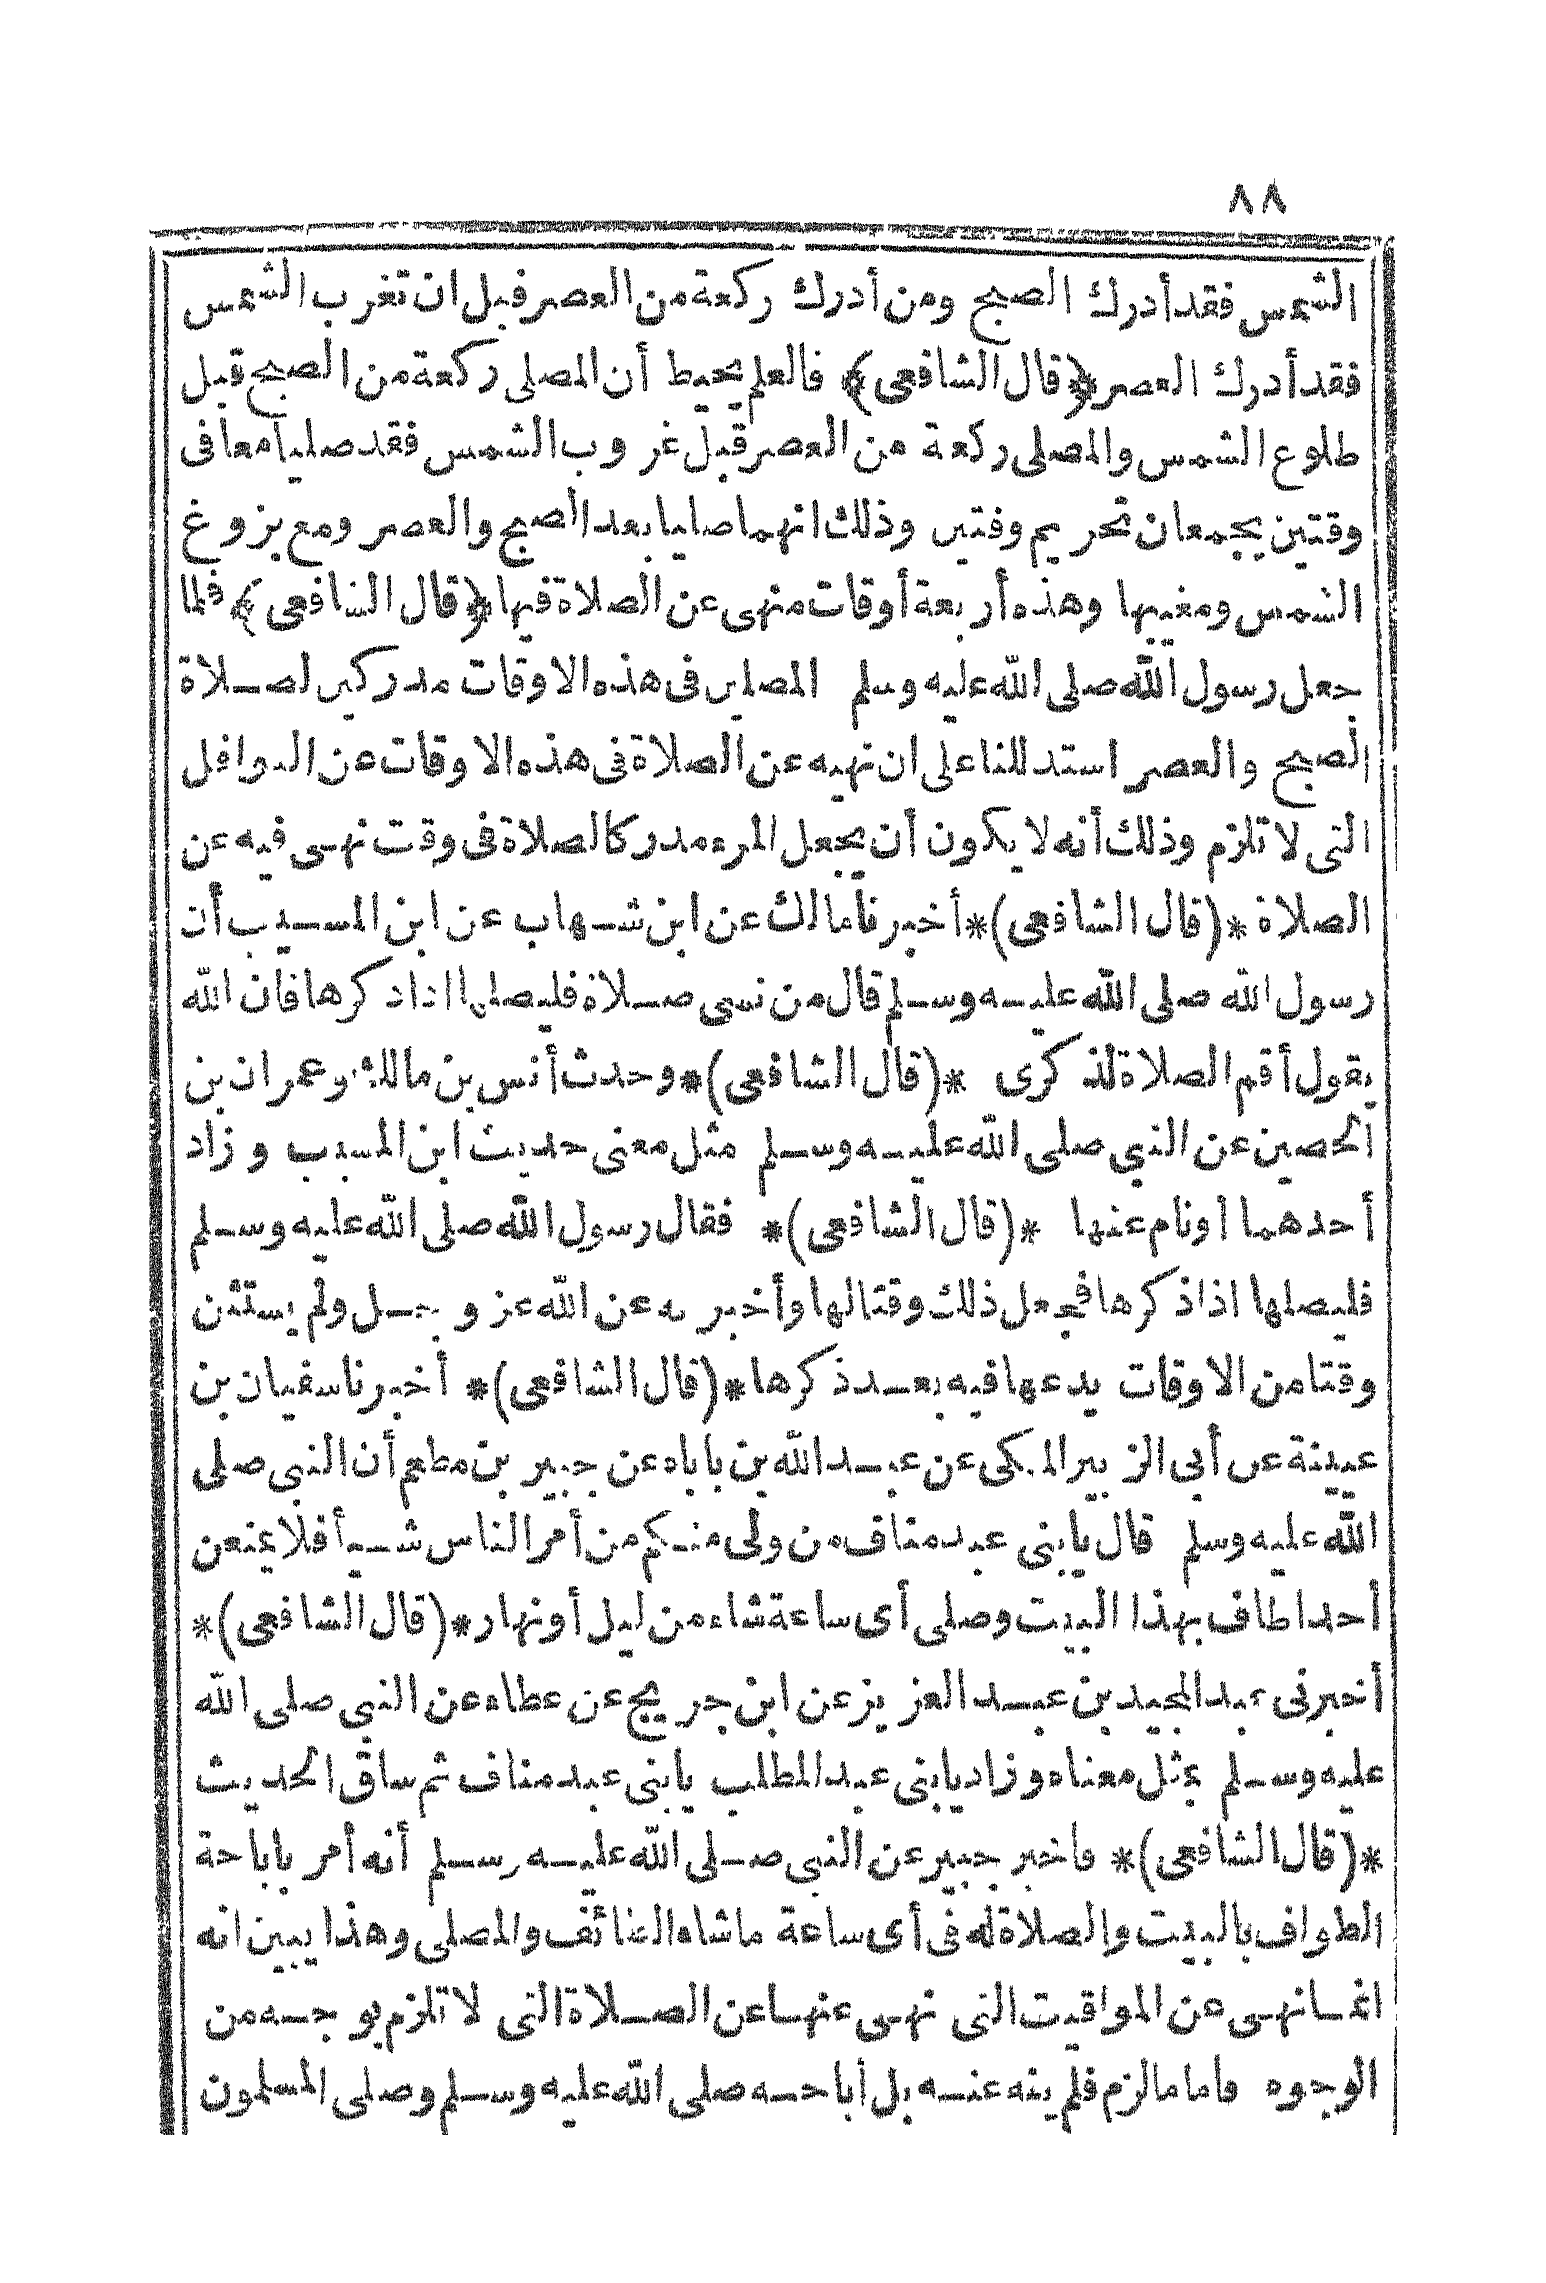 ٨٨
الشمس فقد أدرك الصبح ومن أدرك ركعة من العصر قبل ان تغرب الشمس
فقد أدرك العصر ﴿قال الشافعى﴾ فالعلم يحيط أن المصلى ركعة من الصبح قبل
طلوع الشمس والمصلى ركعة من العصر قبل غروب الشمس فقد صليا معا فى
وقتين يجمعان تحريم وقتين وذلك انهما صليا بعد الصبح والعصر ومع بزوغ
الشمس ومغيبها وهذه أربعة أوقات منهى عن الصلاة فيها ﴿قال الشافعى﴾ فلما
جعل رسول الله صلى الله عليه وسلم المصلين فى هذه الاوقات مدركين لصلاة
الصبح والعصر استدللنا على ان نهيه عن الصلاة فى هذه الاوقات عن النوافل
التى لا تلزم وذلك أنه لا يكون أن يجعل المرء مدركا لصلاة فى وقت نهى فيه عن
الصلاة *(قال الشافعى)* أخبرنا مالك عن ابن شهاب عن ابن المسيب أن
رسول الله صلى الله عليه وسلم قال من نسى صلاة فليصلها اذا ذكرها فان الله
يقول أقم الصلاة لذكرى *(قال الشافعى)* وحدث أنس بن مالك وعمران بن
الحصين عن النبي صلى الله عليه وسلم مثل معنى حديث ابن المسيب وزاد
أحدهما اونام عنها *(قال الشافعى)* فقال رسول الله صلى الله عليه وسلم
فليصلها اذا ذكرها فجعل ذلك وقتا لها وأخبر به عن الله عز وجل ولم يستثن
وقتا من الاوقات يدعها فيه بعد ذكرها *(قال الشافعى)* أخبرنا سفيان بن
عيينة عن أبى الزبير المكى عن عبد الله بن باباه عن جبير بن مطعم أن النبى صلى
الله عليه وسلم قال يا بنى عبد مناف من ولى منكم من أمر الناس شيأ فلا يمنعن
أحدا طاف بهذا البيت وصلى أى ساعة شاء من ليل أو نهار *(قال الشافعى)*
أخبرنى عبد المجيد بن عبد العزيز عن ابن جريج عن عطاء عن النبي صلى الله
عليه وسلم بمثل معناه وزاد يا بنى عبد المطلب يا بنى عبد مناف ثم ساق الحديث
*(قال الشافعى)* فأخبر جبير عن النبى صلى الله عليه وسلم أنه أمر باباحة
الطواف بالبيت والصلاة له فى أى ساعة ما شاء الطائف والمصلى وهذا يبين انه
انما نهى عن المواقيت التى نهى عنها عن الصلاة التى لا تلزم بوجه من
الوجوه فأما ما لزم فلم ينه عنه بل أباحه صلى الله عليه وسلم وصلى المسلمون